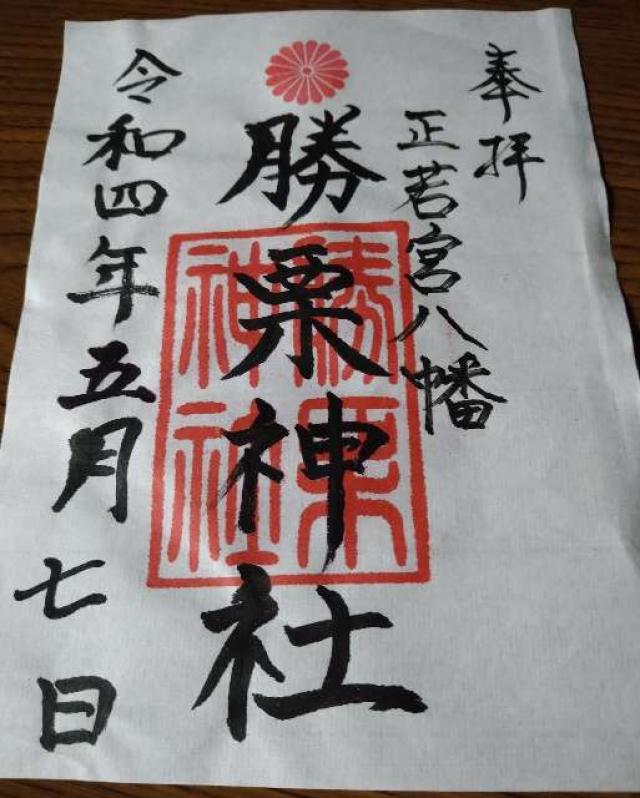 奉拝
正若宮八幡
勝栗神社
勝栗神社
令和四年五月七日